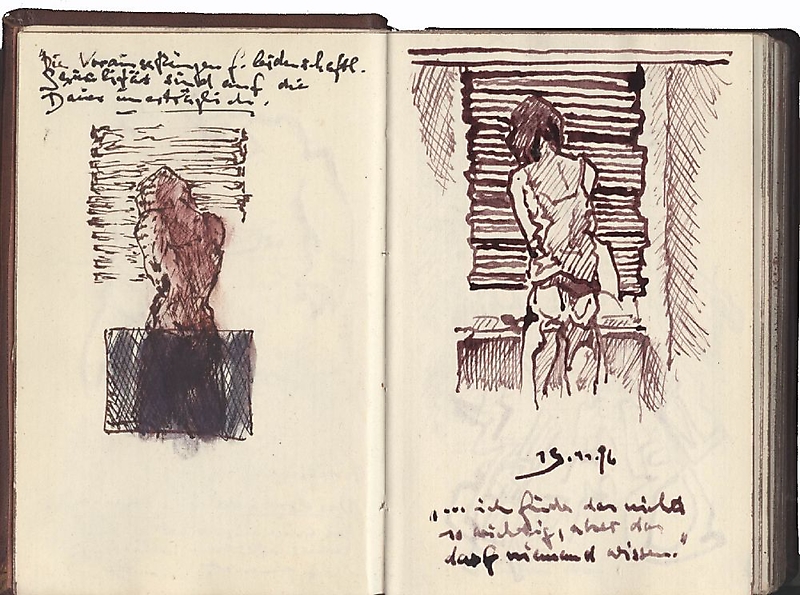 "Die Voraussetzungen f. leidenschaftl.
Sexualität sind auf die
Dauer unerträglich.
19.11.96
"... ich finde das nicht
so wichtig, aber das
darf niemand wissen."